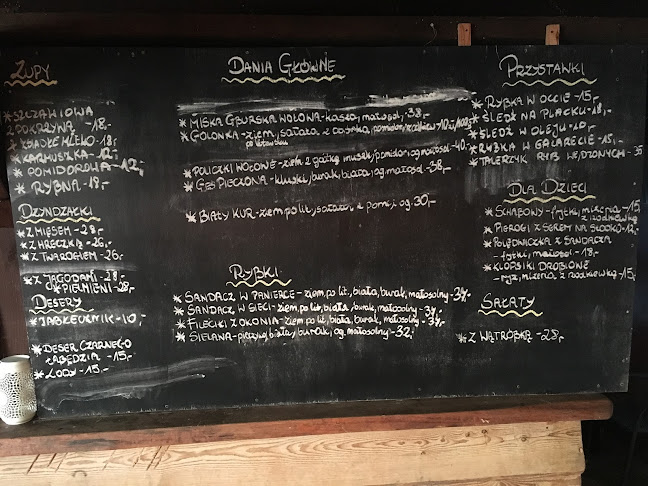 ZUPY
* SZCZAWIOWA
Z POKRZYWĄ -18,-
MLEKO -18,-
* KARMUSZKA - 12,-
* POMIDOROWA - 12,-
* RYBNA - 18,-
DZYNDZAŁKI
* Z MIĘSEM - 28,-
* Z HRECZKĄ - 26,-
* Z TWAROGIEM - 26,-
* Z JAGODAMI - 28,-
* PIELMIENI - 28,-
DESERY
* JABŁECZNIK - 10,-
* DESER CZARNEGO
ŁABĘDZIA - 15,-
* LODY - 15,-
DANIA GŁÓWNE
* MISKA GBURSKA WOŁOWA - kasza, małosol, 38,-
* GOLONKA - ziem, sałata z
* POLICZKI WOŁOWE - ziem z gałką muszk, pomidor, og małosol - 40,-
* GĘŚ PIECZONA - kluski, burak, biała, og małosol - 38,-
* BIAŁY KUR - ziem po lit, sałata z pomi, og. 30,-
RYBKI
* SANDACZ W PANIERCE - ziem. po lit, biała, burak, małosolny - 34,-
* SANDACZ W SIECI - ziem. po lit, biała, burak, małosolny - 34,-
* FILECIKI Z OKONIA - ziem. po lit, biała, burak, małosolny - 34,-
* SIELAWA - biała, burak, og. małosolny - 32,-
PRZYSTAWKI
* RYBKA W OCCIE - 15,-
* ŚLEDŹ NA PLACKU - 18,-
* ŚLEDŹ W OLEJU - 10,-
* RYBKA W GALARECIE - 15,-
* TALERZYK RYB WĘDZONYCH - 35
DLA DZIECI
* SCHABOWY - frytki, mizeria - 15,-
* PIEROGI Z SEREM NA SŁODKO - 12,-
* POLĘDWICZKA Z SANDACZA
- frytki, małosol - 18,-
* KLOPSIKI DROBIOWE
- ryż, mizeria z rzodkiewką - 15,-
SAŁATY
* Z WĄTRÓBKĄ - 28,-